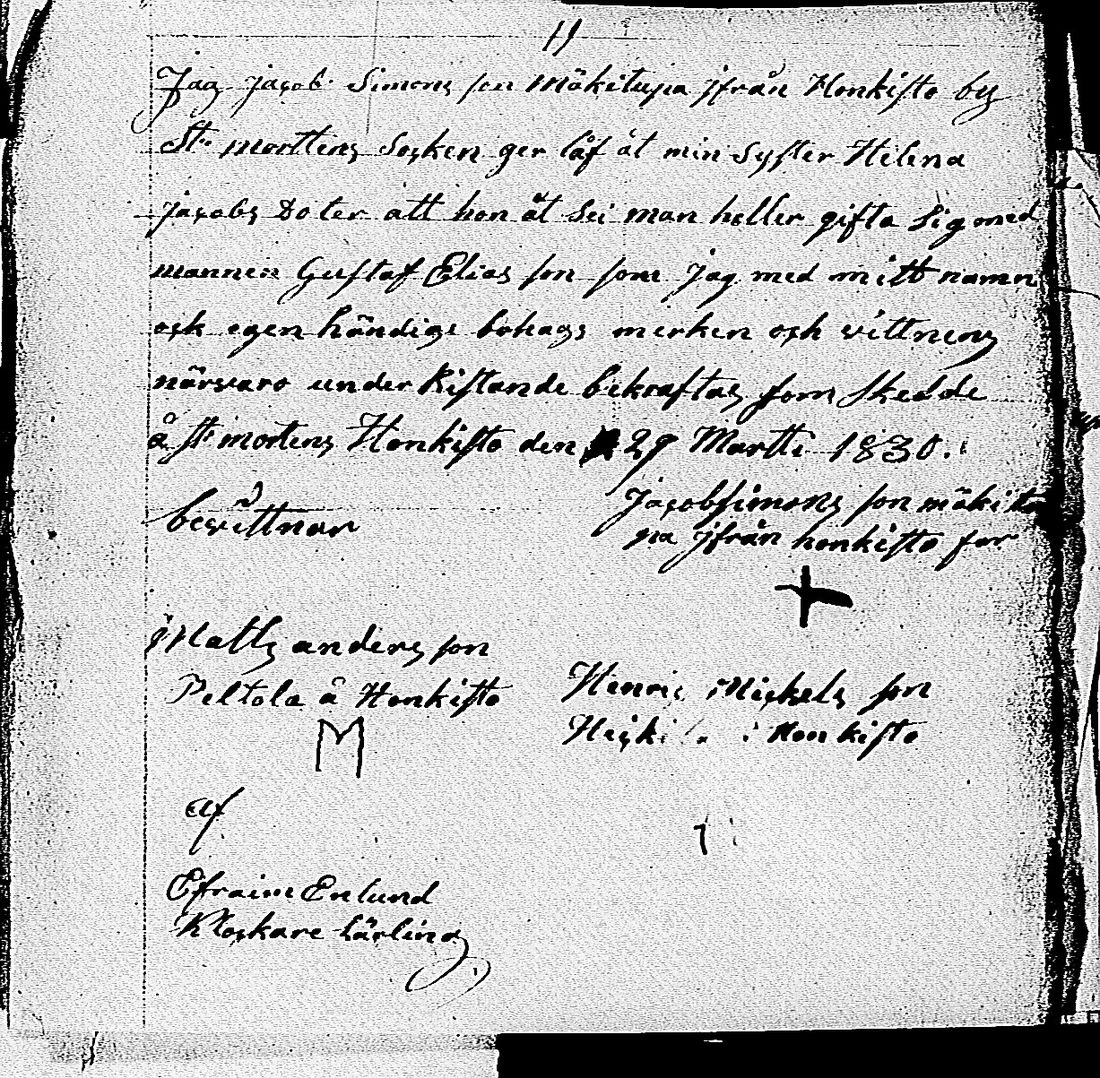 11
Jag Jacob Simons son Mäkitupa jfrån Honkisto by
St. morttens Socken ger låf åt min Syster Helena
Jacobs Doter att hon åt sei man heller gifta sig med
mannen Gustaf Elias son som Jag med mitt namn
ock egen händige bohags merken och vittnens
närvaro under Kistande bekraftas som skedde
å St mortens Honkisto den 29 Martti 1830.
Jacob Simons son mäkitu
bevittnar
pa jfrån honkisto for
Matts anders son
Peltola å Honkisto
M
Henric Mickels son
Heicki i Honkisto
af
Efraim Enlund
Klockare Lärling